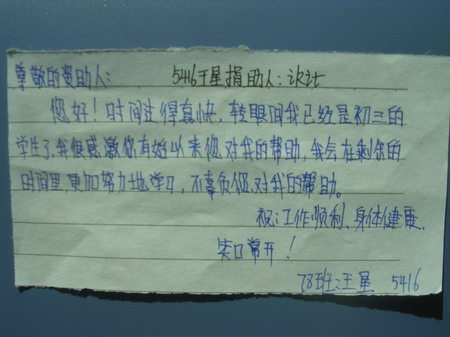 尊敬的资助人： 5416王星捐助人：
您好！时间过得真快，转眼间我已经是初三的
学生了，我很感激你有始以来您对我的帮助，我会在剩余的
时间里，更加努力地学习，不辜负您对我的帮助。
祝：工作顺利、身体健康、
笑口常开！
78班：王星 5416